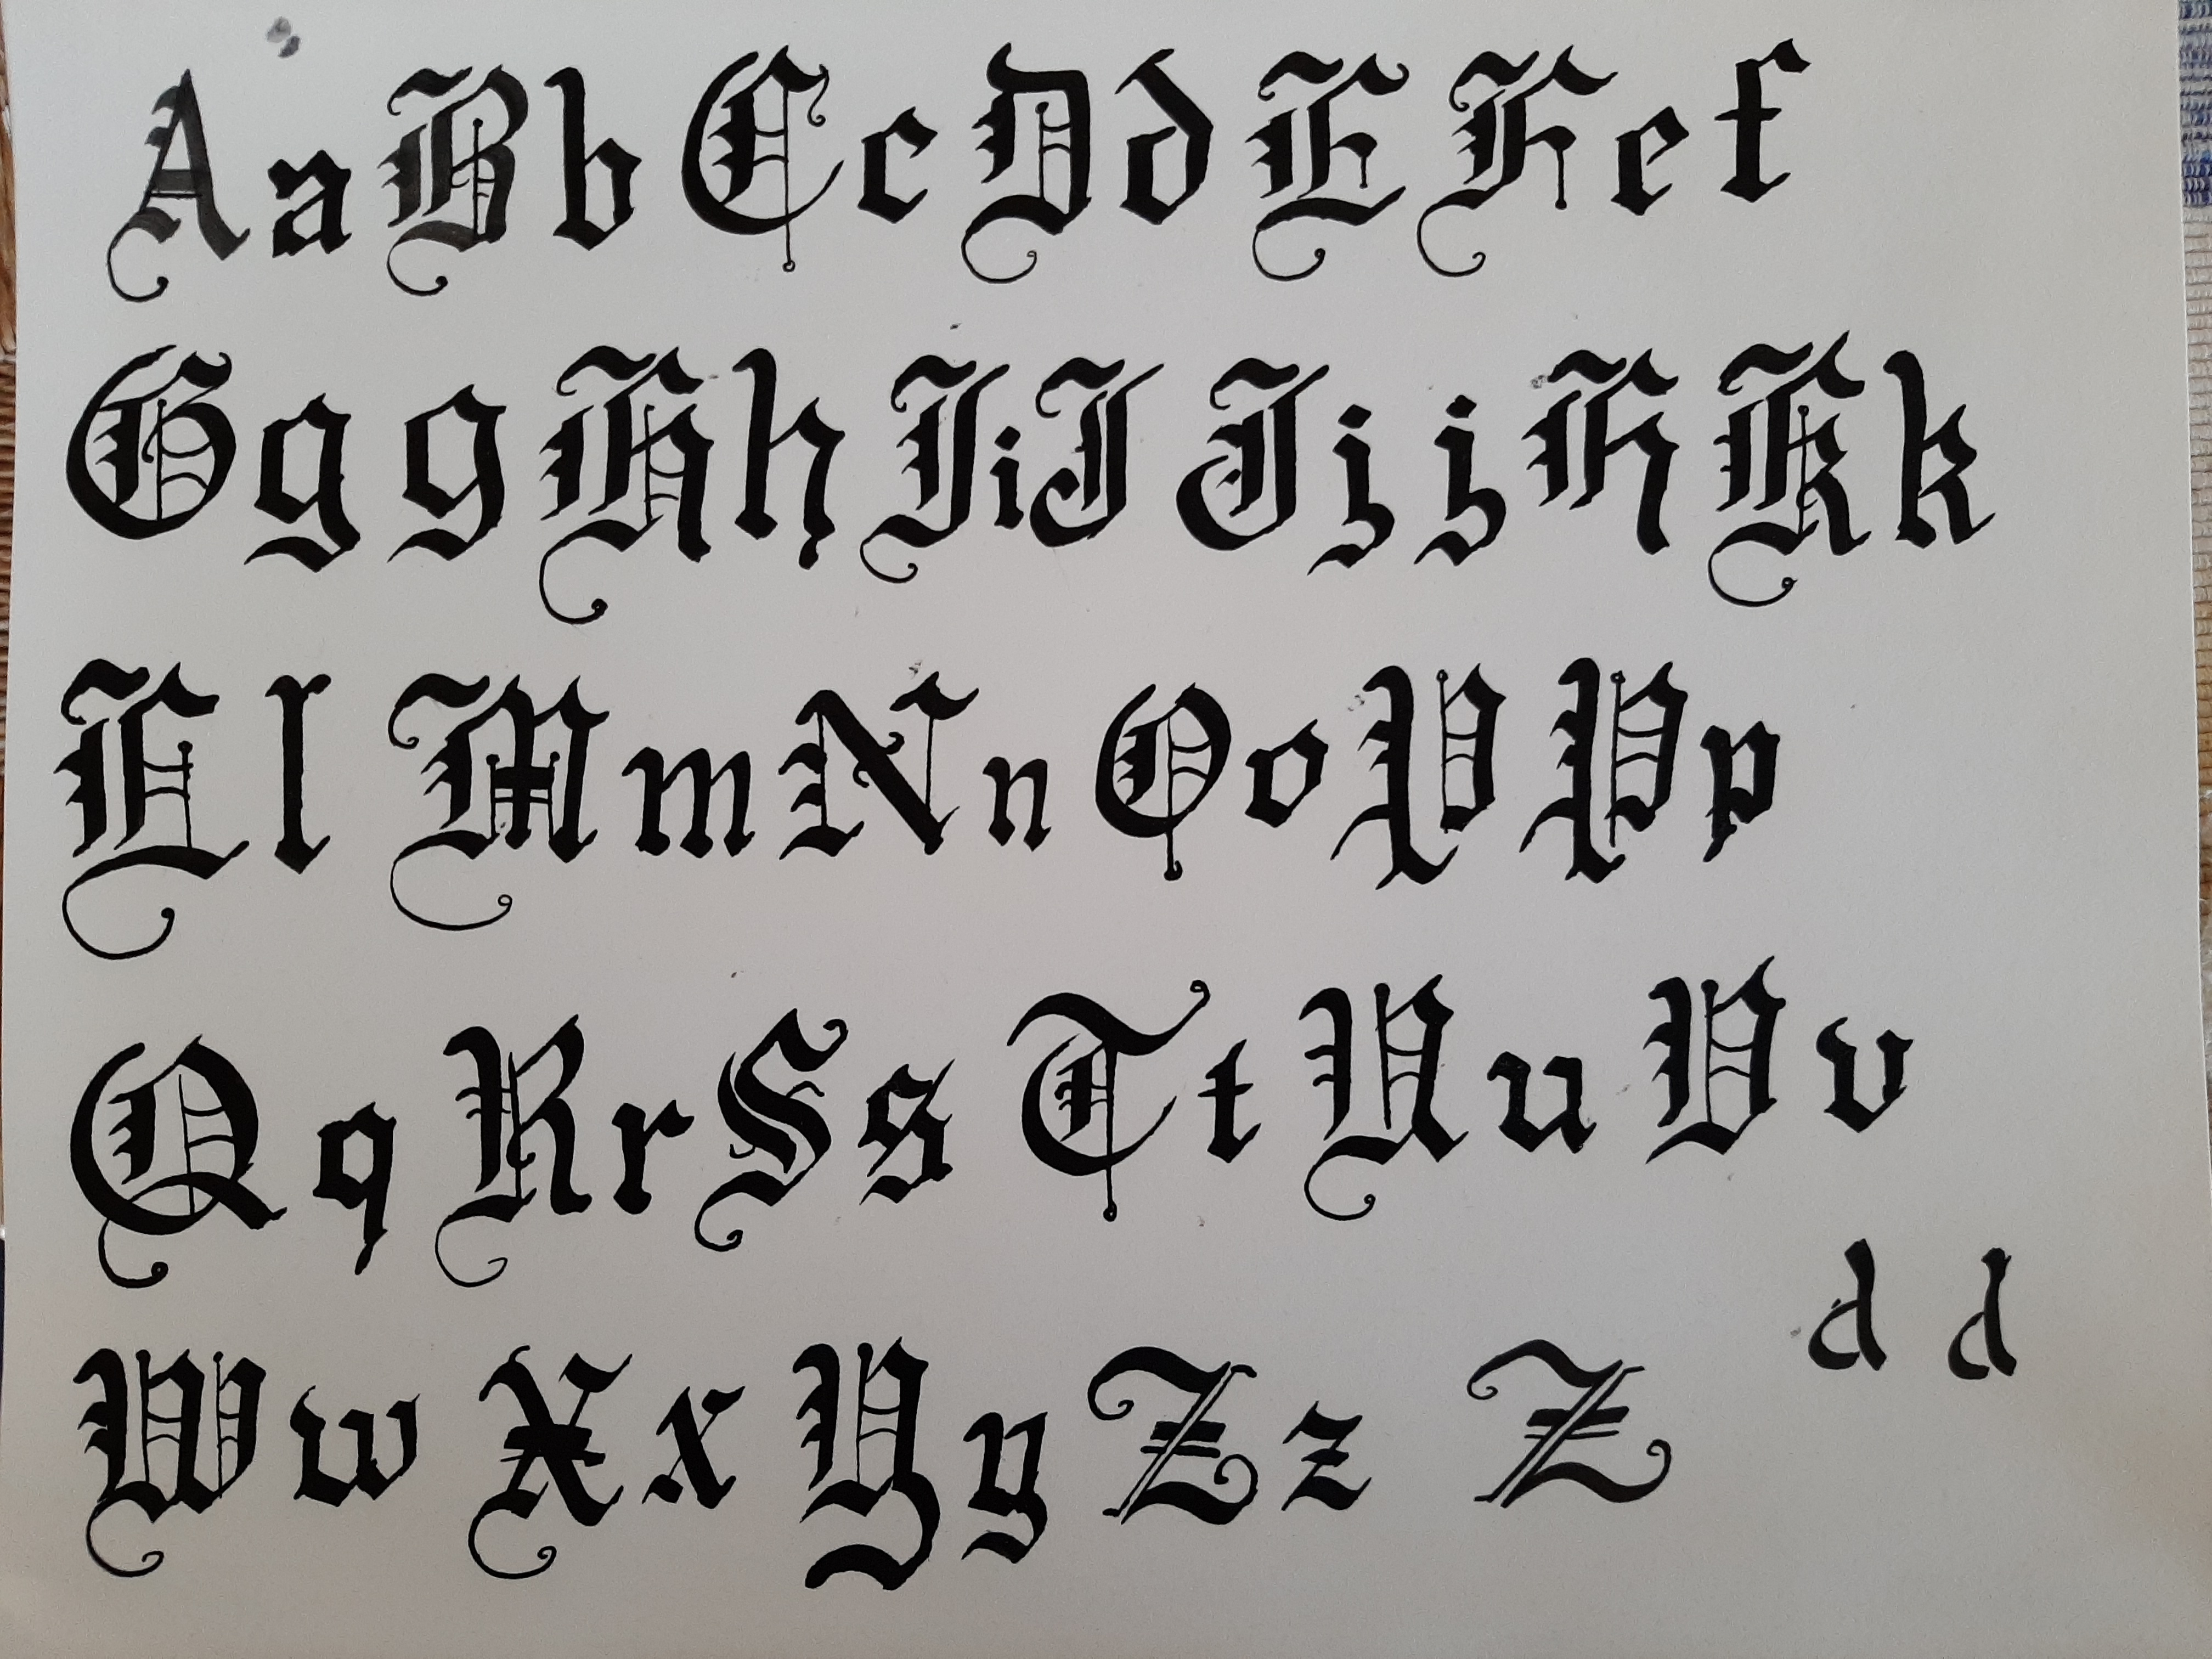 A a B b C c D d E F e f
G g g H h I i J J j j K K k
L l M m N n O o P P p
Q q R r S s T t U u V v
d d
W w X x Y y Z z Z